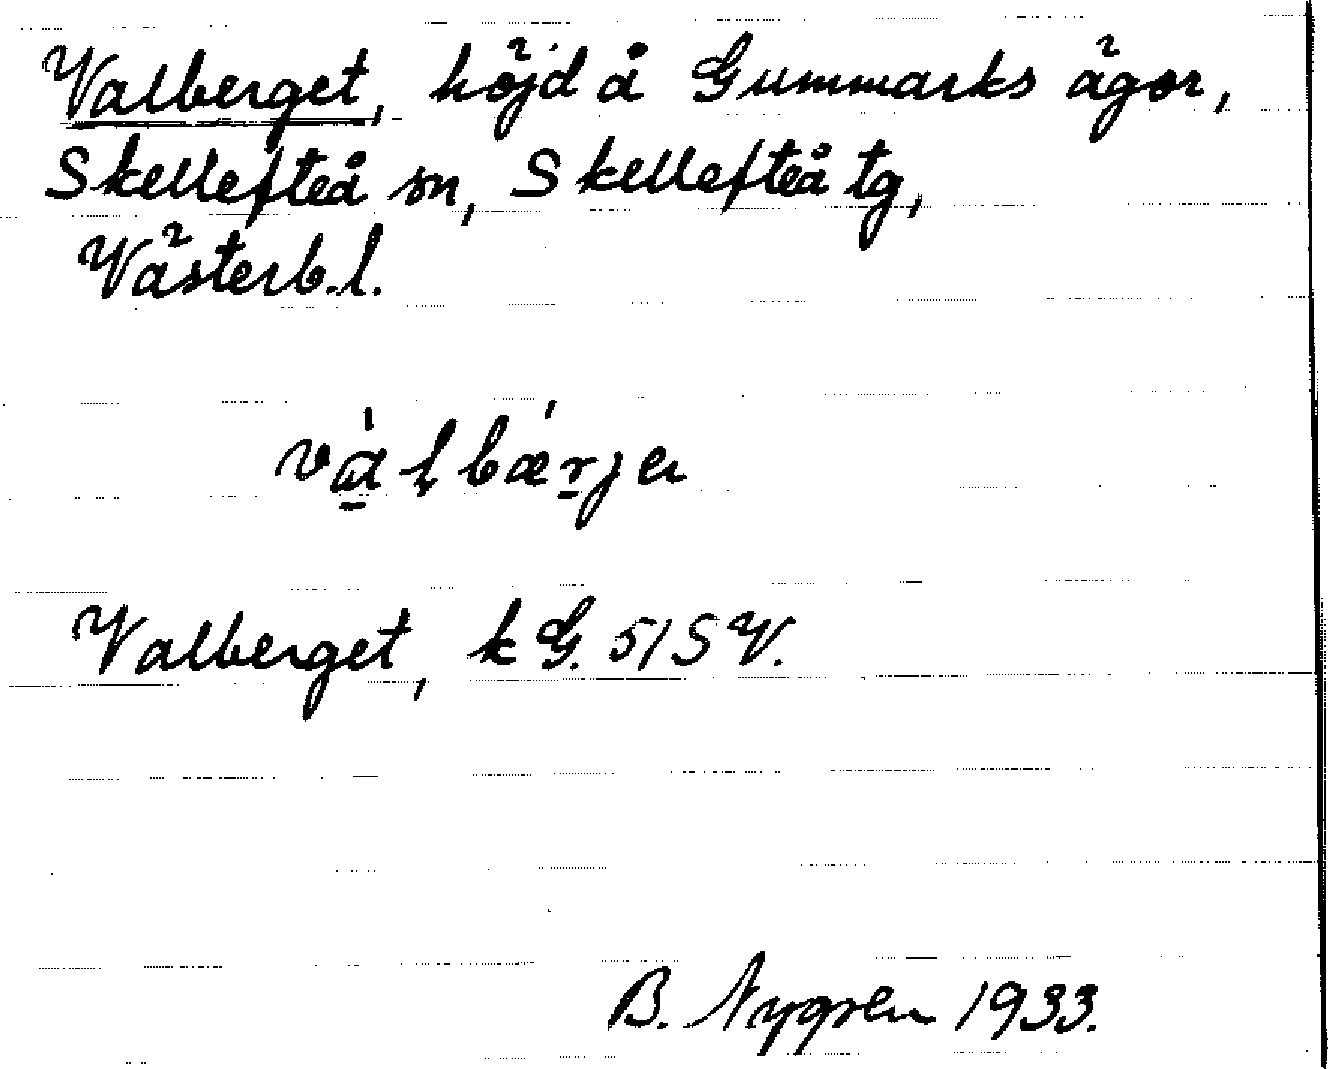 Valberget, höjd å Gummarks ägor,
Skellefteå sn, Skellefteå tg,
Västerb. l.
Valberget, k G. 5/SV.
B. Nygren 1933.